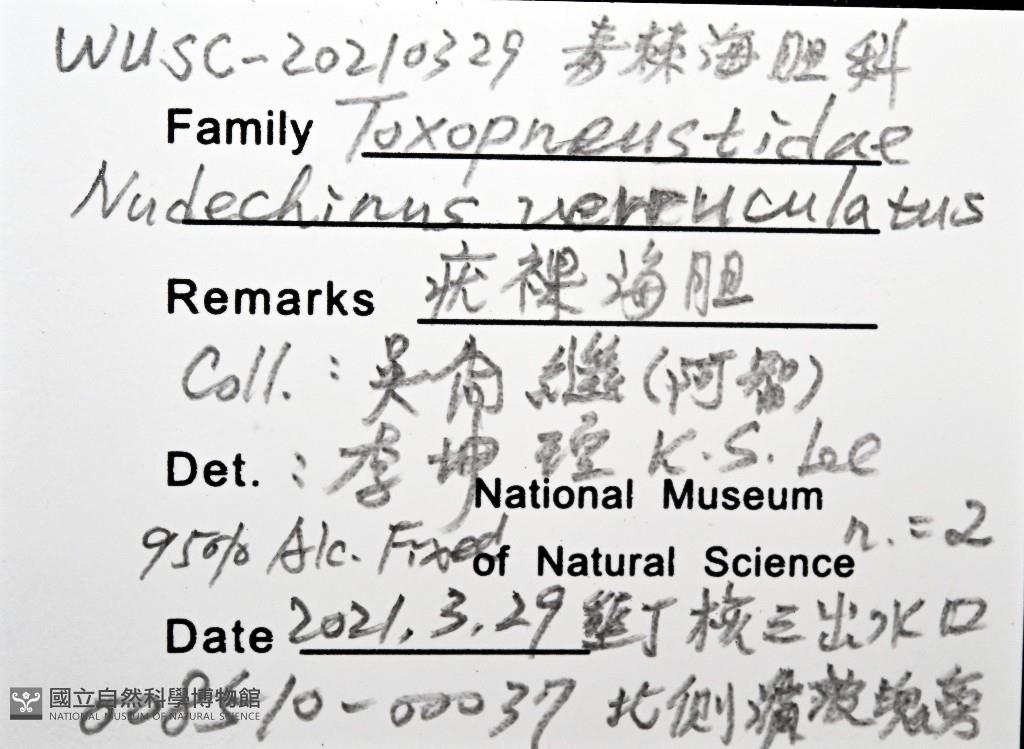 WUSC-20210329 毒棘海胆科
Family Toxopneustidae
Nudechinus verruculatus
Remarks 疣裸海胆
Coll.: 吳尚繼(阿智)
Det.: 李坤瑄 K.S. Lee
National Museum
95% Alc. Fixed of Natural Science n.=2
Date 2021.3.29 墾丁核三出水口
10-00037 北側
國立自然科學博物館
NATIONAL MUSEUM OF NATURAL SCIENCE